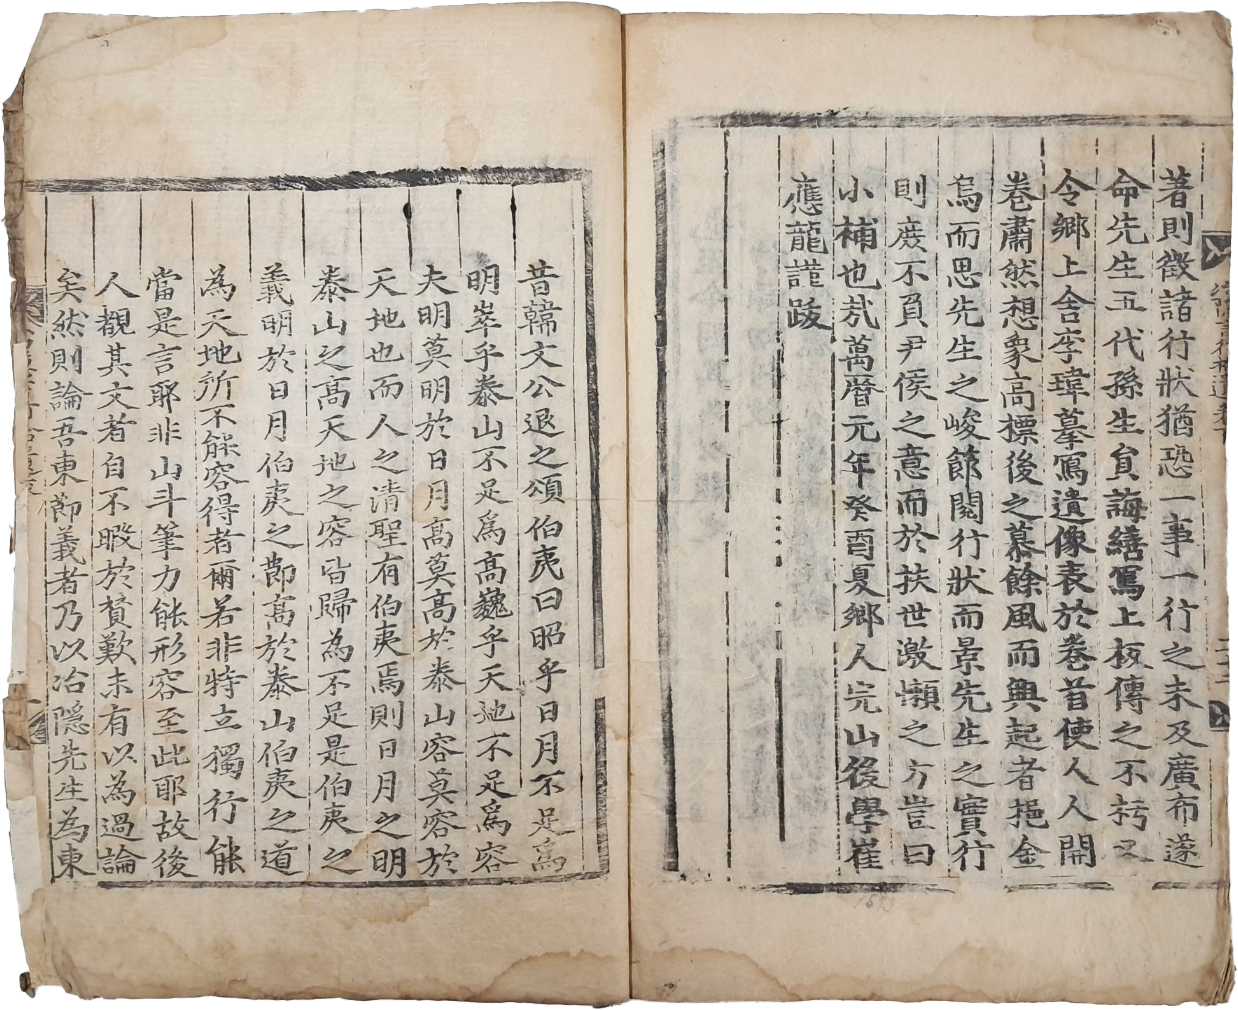 著則徵諸行狀猶恐一事一行之未及廣布遂
命先生五代孫生負誨繕寫上板傳之不朽又
令鄉上舍李瑋摹寫遺像表於卷首使人人開
卷肅然想象高標後之慕餘風而興起者挹金
烏而思先生之峻節閱行狀而景先生之實行
則庶不負尹侯之意而於扶世激懶之方豈曰
小補也㢤萬曆元年癸酉夏鄉人完山後學崔
應龍謹跋
昔韓文公退之頌伯夷曰昭乎日月不足為高
明崒乎泰山不足為高巍乎天地不足為容
夫明莫明於日月高莫高於泰山容莫容於
天地也而人之清聖有伯夷焉則日月之明
泰山之高天地之容皆歸為不足是伯夷之
義明於日月伯夷之節高於泰山伯夷之道
為天地所不能容得者爾若非特立獨行能
當是言耶非山斗筆力能形容至此耶故後
人觀其文者自不暇於贊歎未有以為過論
矣然則論吾東節義者乃以冶隱先生為東